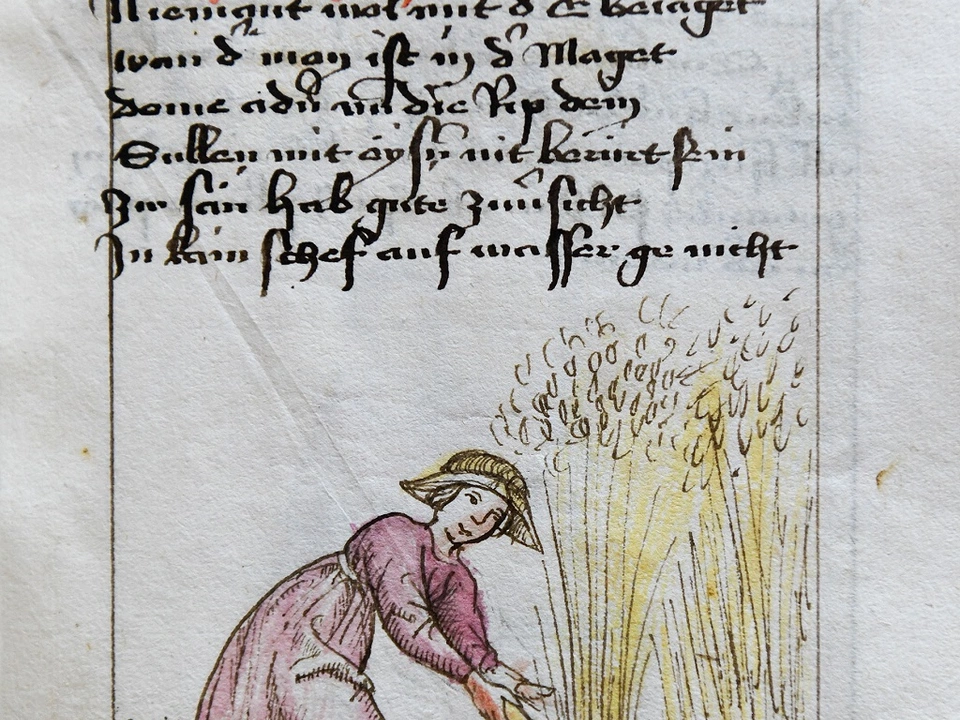 Niemant wol mit d E behaget
wan d mon ist in d Maget
dome adn vnd die Rip dem
Sullen mit eysn nit berürt sein
Zw säen hab gute zuüsicht
In kain schef auf wasser ge nicht